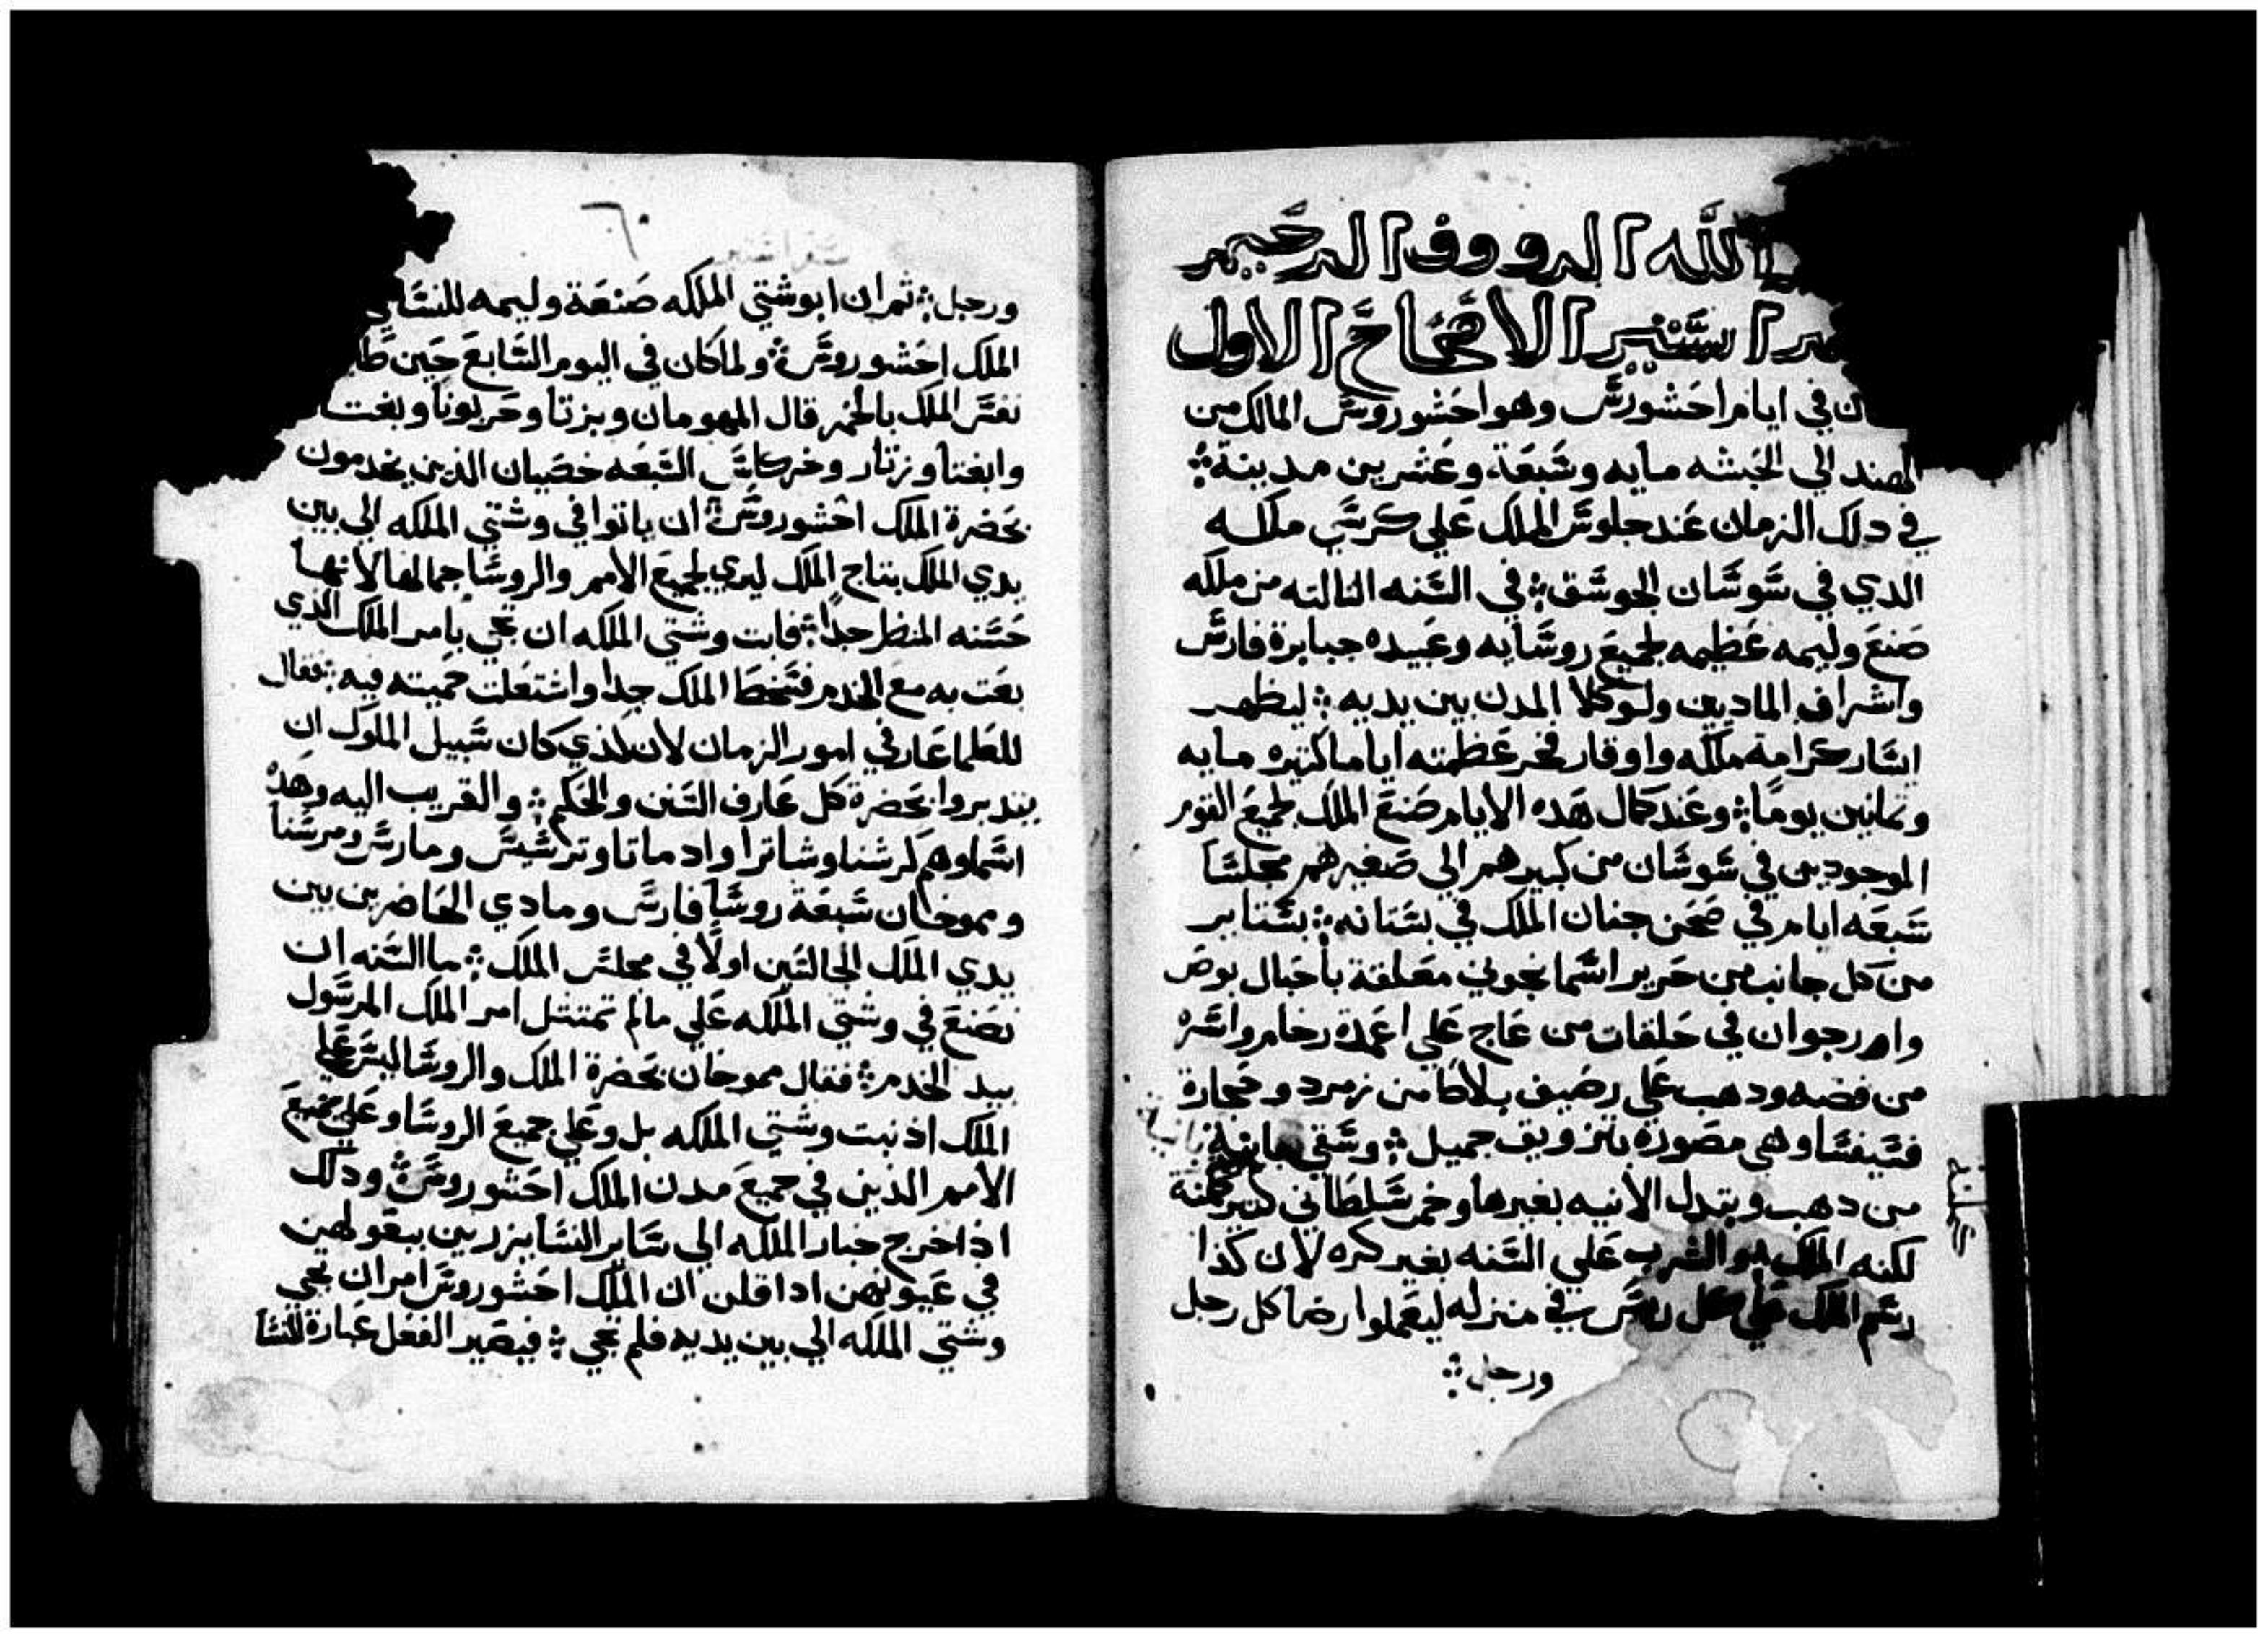 الله الرووف الرحيم
استير الاصحاح الاول
في ايام احشورش وهو احشوروش المالك من
الهند الي الحبشه مايه وسبعة وعشرين مدينة
في دلك الزمان عند جلوس الملك علي كرسي ملكه
الدي في شوشان الجوسق في السنه التالته من ملكه
صنع وليمه عظيمه لجميع روسايه وعبيده جبابرة فارس
واشراف الماديين ولوكلا المدن بين يديه ليظهر
ايسار كرامة ملكه واوقار فخر عظمته اياما كتيره مايه
وتمانين يوما وعند كمال هده الايام صنع الملك لجميع القوم
الموجودين في شوشان من كبيرهم الي صغيرهم مجلسا
سبعه ايام في صحن جنان الملك في بستانه بستاير
من كل جانب من حرير اسمانجوني معلقة باحبال بوص
وارجوان في حلقات من عاج علي اعمدة رخام واسره
من فضه ودهب علي رصيف بلاط من زمرد وحجارة
فسيفسا وهي مصوره بتزويق جميل وسقي
من دهب وبتدل الانيه بغيرها وخمر سلطاني
لكنه الملك والشرب علي السنه بغير كره لان كذا
رسم الملك علي كل ريس في منزله ليعملوا رضا كل رجل
ورجل
٦٠
ورجل ثم ان ابوشتي الملكه صنعة وليمه للنسا
الملك احشوروش ولما كان في اليوم السابع حين
نفس الملك بالخمر قال لمهومان وبزتا وحربونا وبغتا
وابغتا وزتار وخركاس السبعه خصيان الذين يخدمون
بحضرة الملك احشوروش ان ياتوا في وشتي الملكه الي بين
يدي الملك بتاج الملك ليري لجميع الامم والروسا جمالها لانها
حسنه المنظر جدا فابت وشتي الملكه ان تجي بامر الملك الذي
بعت به مع الخدم فسخط الملك جدا واشتعلت حميته فيه فقال
للعلما عارفي امور الزمان لان لذي كان سبيل الملوك ان
يتدبروا بحضرة كل عارف السنن والحكم والقريب اليه وهده
اسماوهم كرشنا وشاترا وادماتا وترشيش ومارس ومرسنا
ومموخان سبعة روسا فارس ومادي الحاضرين بين
يدي الملك الجالسين اولا في مجلس الملك ما السنه ان
نصنع في وشتي الملكه علي مالم تمتتل امر الملك المرسول
بيد الخدم فقال مموخان بحضرة الملك والروسا ليس علي
الملك اذنبت وشتي الملكه بل وعلي جميع الروسا وعلي جميع
الامم الذين في جميع مدن الملك احشوروش ودلك
اذا خرج خبار الملكه الي ساير النسا يزرين ببعولهن
في عيونهن ادا قلن ان الملك احشوروش امر ان تجي
وشتي الملكه الي بين يديه فلم تجي فيصير الفعل عبارة للنسا